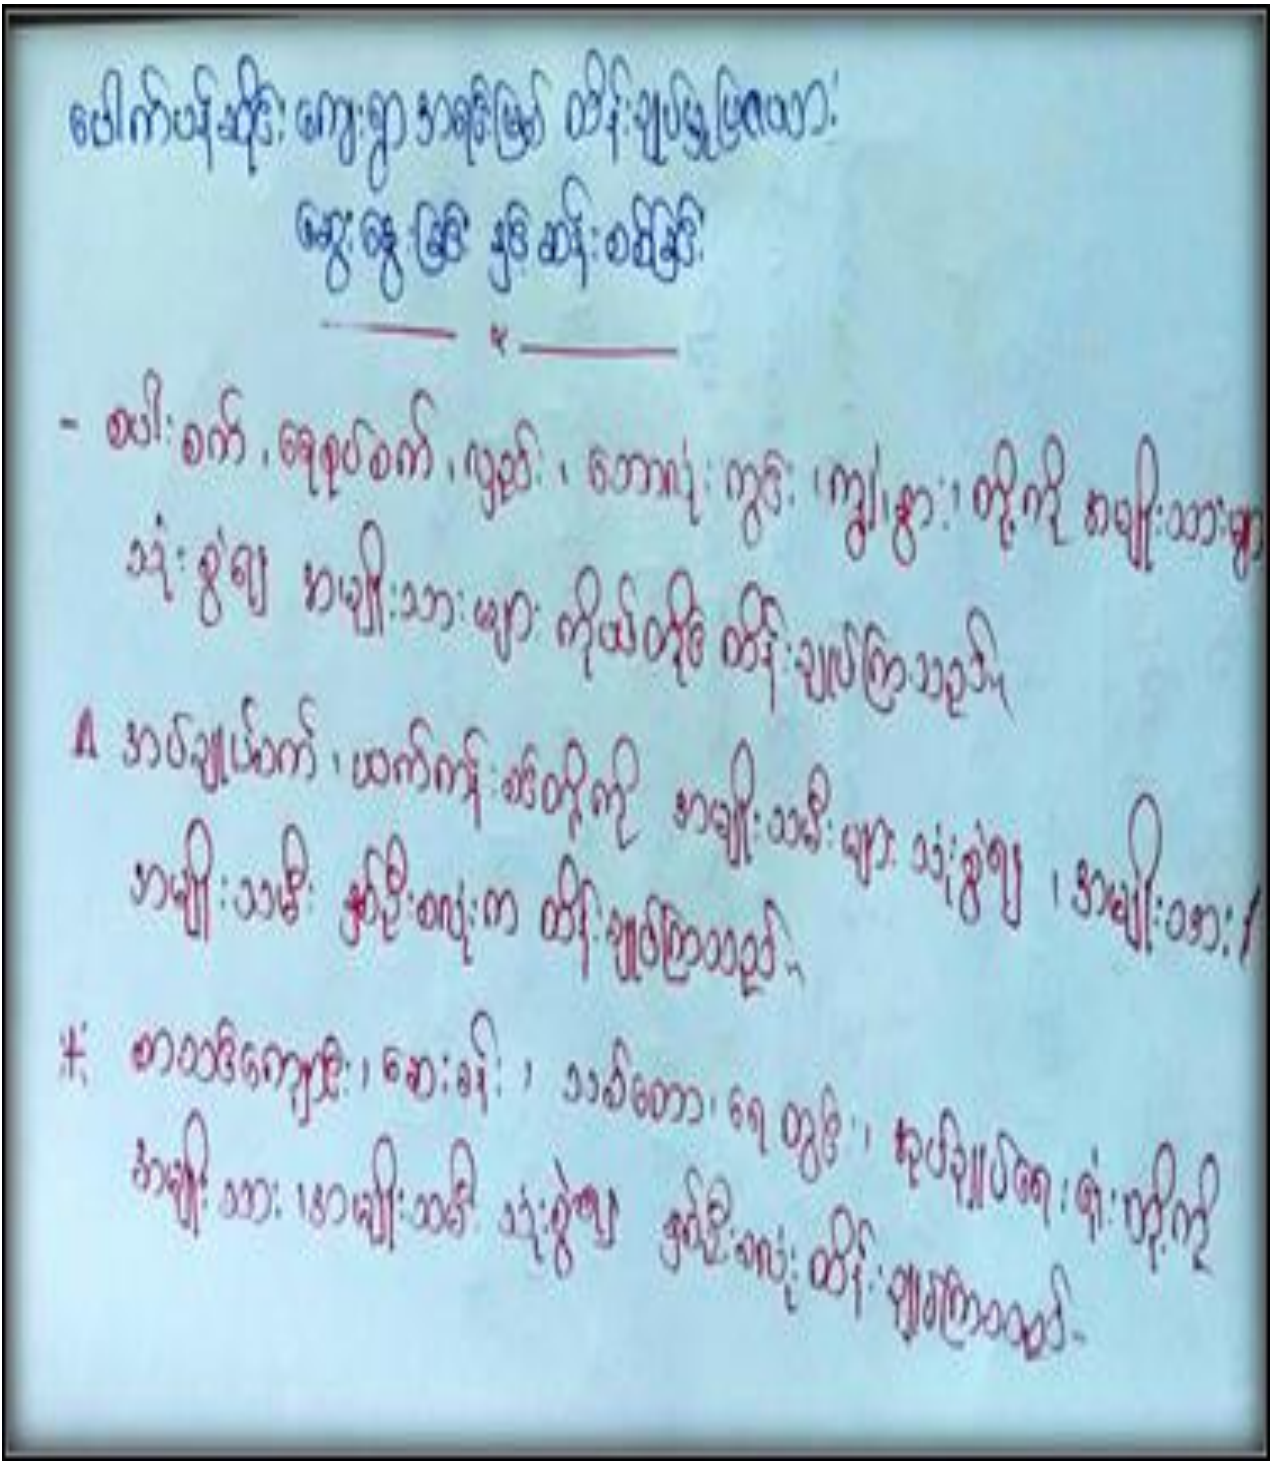 ပေါက်ပန်ဆိုင်း ကျေးရွာ အရင်းမြစ် ထိန်းချုပ်မှု ပြဇယား
ဆွေးနွေးခြင်း နှင့် ဆန်းစစ်ခြင်း
- စပါးစက်၊ ရေစုပ်စက်၊ လှည်း၊ ဘောလုံးကွင်း၊ ကျွဲ၊ နွား၊ တို့ကို အမျိုးသားများ
သုံးစွဲ၍ အမျိုးသားများ ကိုယ်တိုင် ထိန်းချုပ်ကြသည်။
အပ်ချုပ်စက်၊ ယက်ကန်းစင်တို့ကို အမျိုးသမီးများ သုံးစွဲ၍၊ အမျိုးသား/
အမျိုးသမီး နှစ်ဦးစလုံးက ထိန်းချုပ်ကြသည်။
* စာသင်ကျောင်း၊ ဆေးခန်း၊ သစ်တော၊ ရေတွင်း၊ အုပ်ချုပ်ရေးရုံးတို့ကို
အမျိုးသား၊ အမျိုးသမီး သုံးစွဲ၍ နှစ်ဦးစလုံး ထိန်းချုပ်ကြသည်။